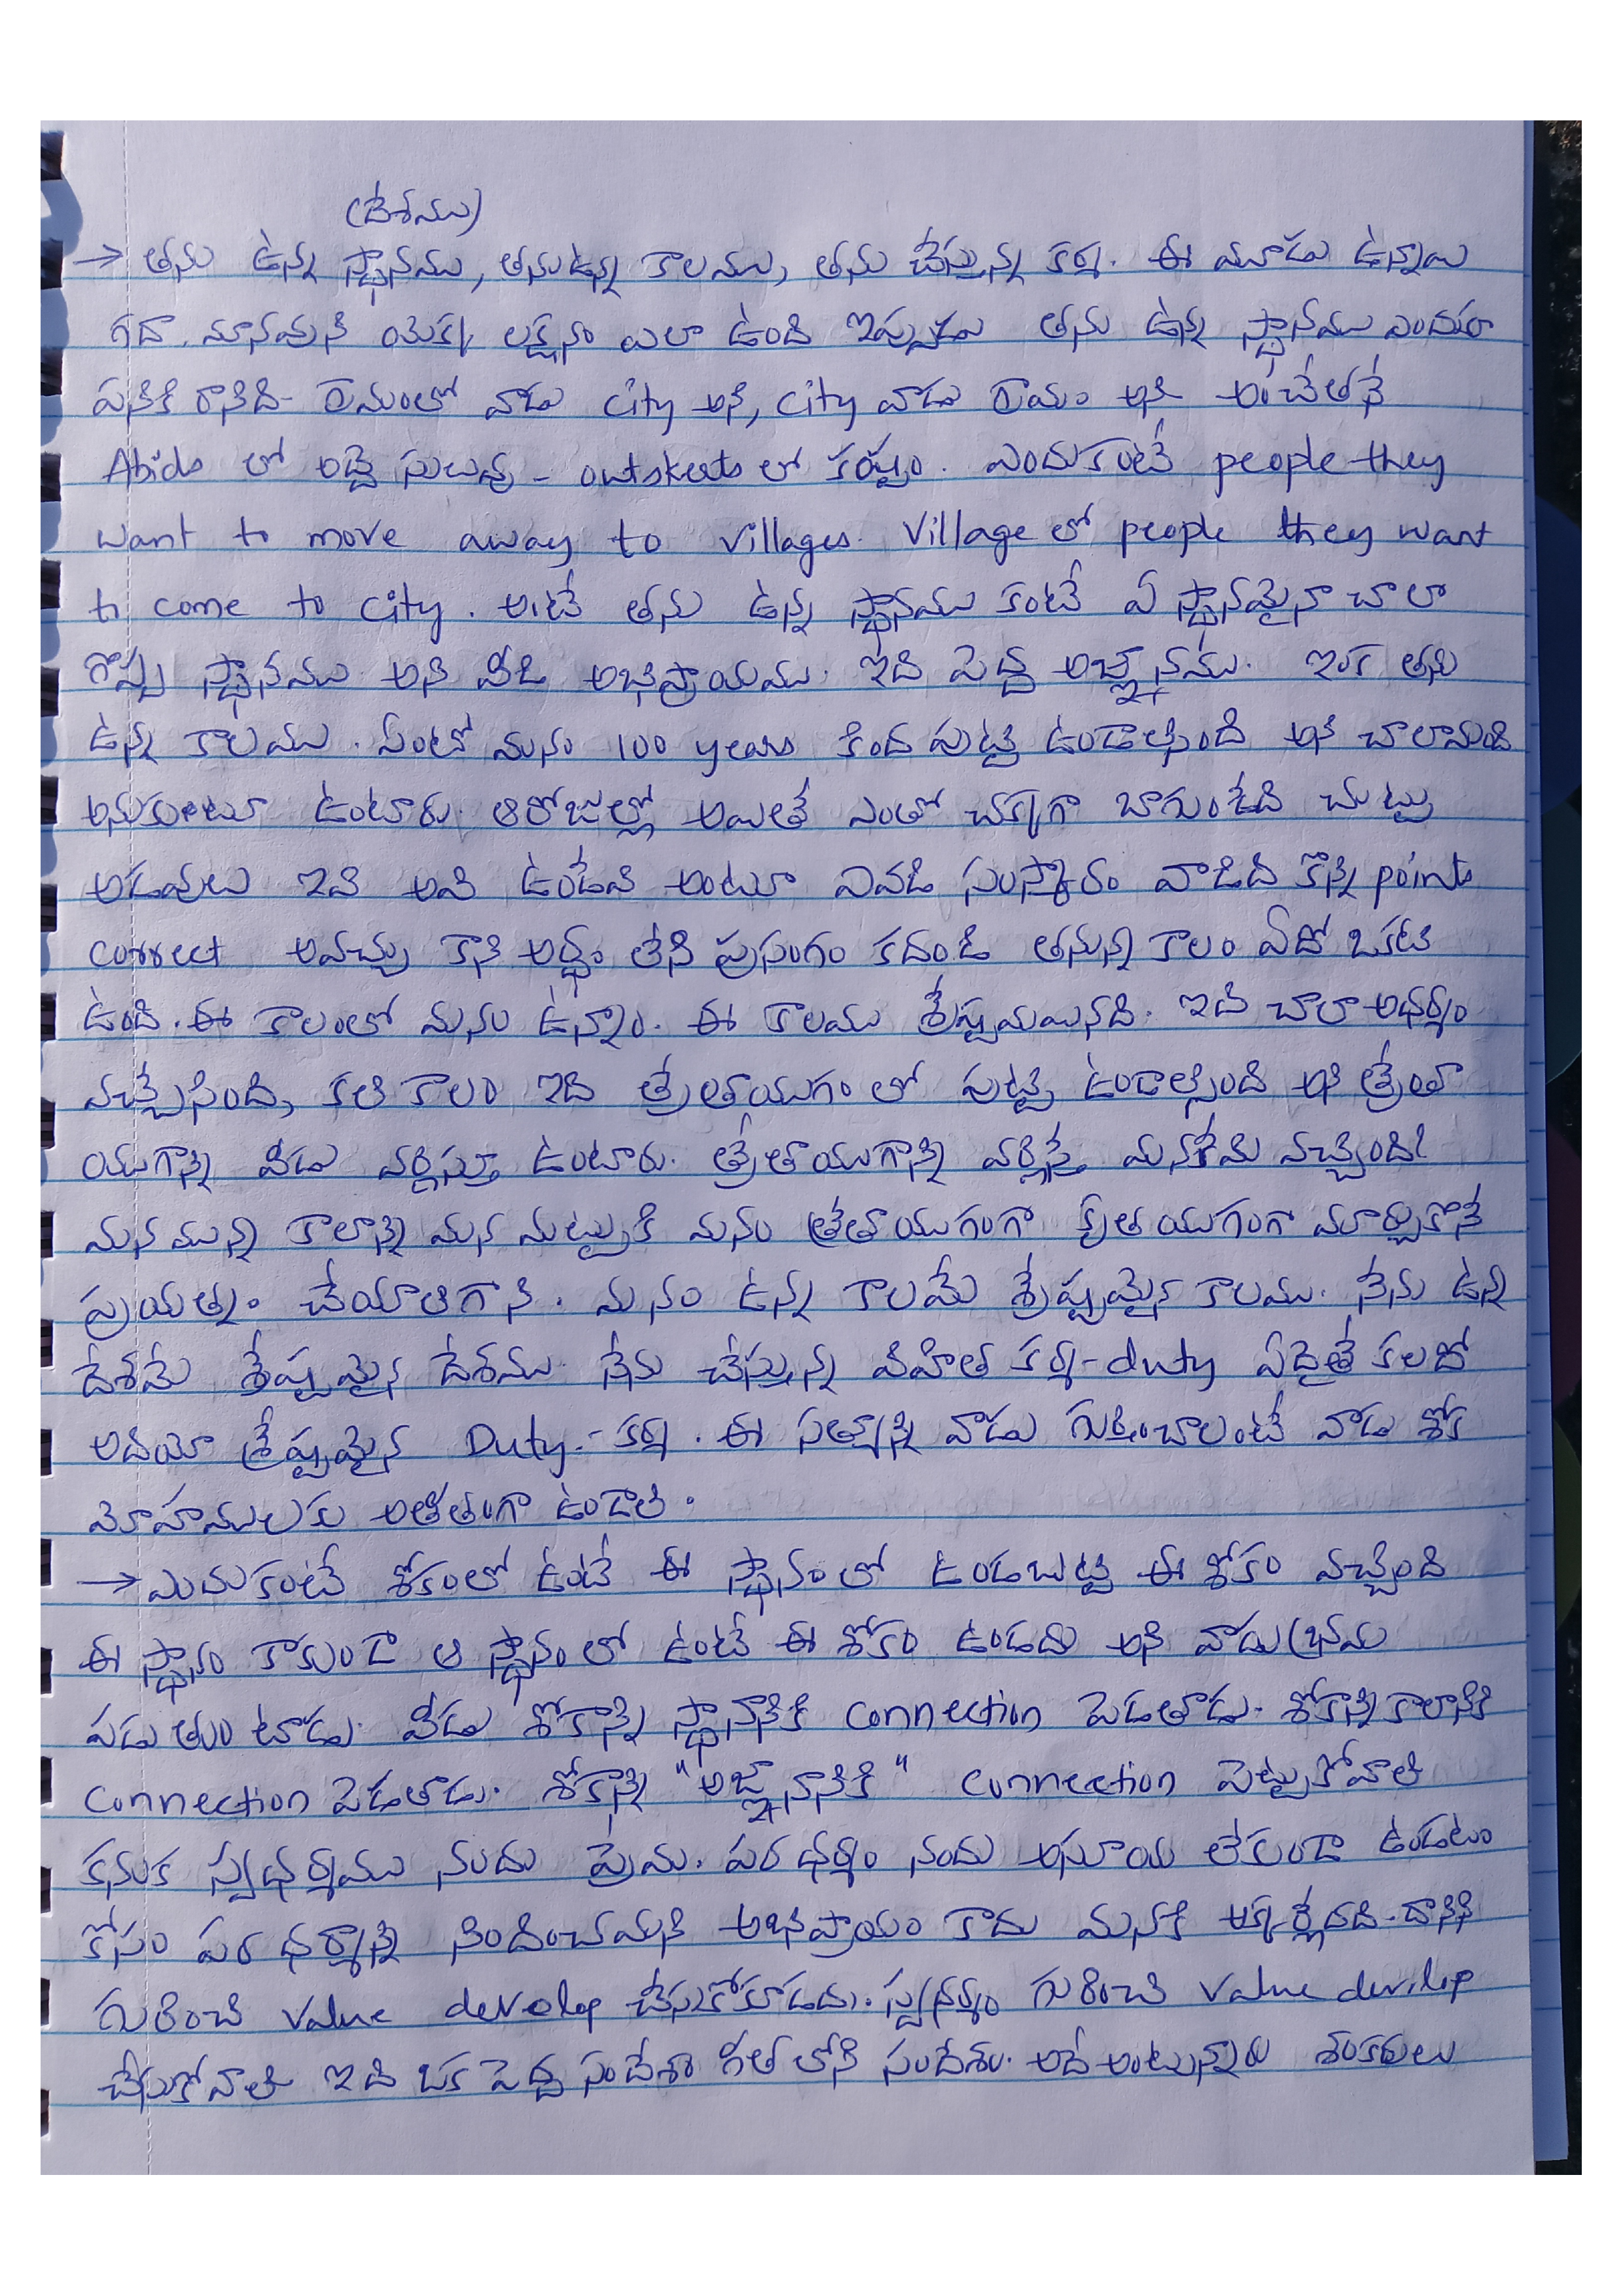 (దేశము)
→ తను ఉన్న స్థానము, తను ఉన్న కాలము, తను చేస్తున్న కర్మ. ఈ మూడు ఉన్నాయి
గదా. మానవుని యొక్క లక్షణం ఎలా ఉంది ఇప్పుడు తను ఉన్న స్థానము ఎందుకూ
పనికి రానిది - గ్రామంలో వాడు city అని, city వాడు గ్రామం అని అంచేతనే
Abids లో అద్దె సులువు - outskerts లో కష్టం. ఎందుకంటే people they
want to move away to villages. Village లో people they want
to come to city. అంటే తను ఉన్న స్థానము కంటే ఏ స్థానమైనా చాలా
గొప్ప స్థానము అని వీడి అభిప్రాయము. ఇది పెద్ద అజ్ఞానము. ఇంక తను
ఉన్న కాలము. ఏంటో మనం 100 years కింద పుట్టి ఉండాల్సింది అని చాలామంది
అనుకుంటూ ఉంటారు. ఆరోజుల్లో అయితే ఎంతో చక్కగా బాగుండేది చుట్టు
అడవులు ఇవి అవి ఉండేవి అంటూ ఎవడి సంస్కారం వాడిది కొన్ని points
correct అవచ్చు కాని అర్థం లేని ప్రసంగం కదండి తనున్న కాలం ఏదో ఒకటి
ఉంది. ఈ కాలంలో మనం ఉన్నాం. ఈ కాలము శ్రేష్టమయినది. ఇది చాలా అధర్మం
వచ్చేసింది, కలి కాలం ఇది త్రేతాయుగం లో పుట్టి ఉండాల్సింది అని త్రేతా
యుగాన్ని వీడు వర్ణిస్తూ ఉంటారు. త్రేతాయుగాన్ని వర్ణిస్తే మనకేమి వచ్చింది?
మన మున్న కాలాన్ని మన మట్టుకి మనం త్రేతాయుగంగా కృత యుగంగా మార్చుకొనే
ప్రయత్నం చేయాలిగాని. మనం ఉన్న కాలమే శ్రేష్టమైన కాలము. నేను ఉన్న
దేశమే శ్రేష్టమైన దేశము. నేను చేస్తున్న విహిత కర్మ - duty ఏదైతే కలదో
అదియే శ్రేష్టమైన Duty - కర్మ. ఈ సత్యాన్ని వాడు గుర్తించాలంటే వాడు శోక
మోహములకు అతీతంగా ఉండాలి.
→ ఎందుకంటే శోకంలో ఉంటే ఈ స్థానంలో ఉండబట్టి ఈ శోకం వచ్చింది
ఈ స్థానం కాకుండా ఆ స్థానం లో ఉంటే ఈ శోకం ఉండదు అని వాడు భ్రమ
పడుతుంటాడు. వీడు శోకాన్ని స్థానానికి connection పెడతాడు. శోకాన్ని కాలానికి
connection పెడతాడు. శోకాన్ని "అజ్ఞానానికి" connection పెట్టుకోవాలి
కనుక స్వధర్మము నందు ప్రేమ. పర ధర్మం నందు అసూయ లేకుండా ఉండటం
కోసం పర ధర్మాన్ని నిందించమని అభిప్రాయం కాదు మనకి అక్కర్లేనిది - దానిని
గురించి value develop చేసుకోకూడదు. స్వధర్మం గురించి value devilop
చేసుకోవాలి ఇది ఒక పెద్ద సందేశం గీత లోని సందేశం. అదే అంటున్నారు శంకరులు